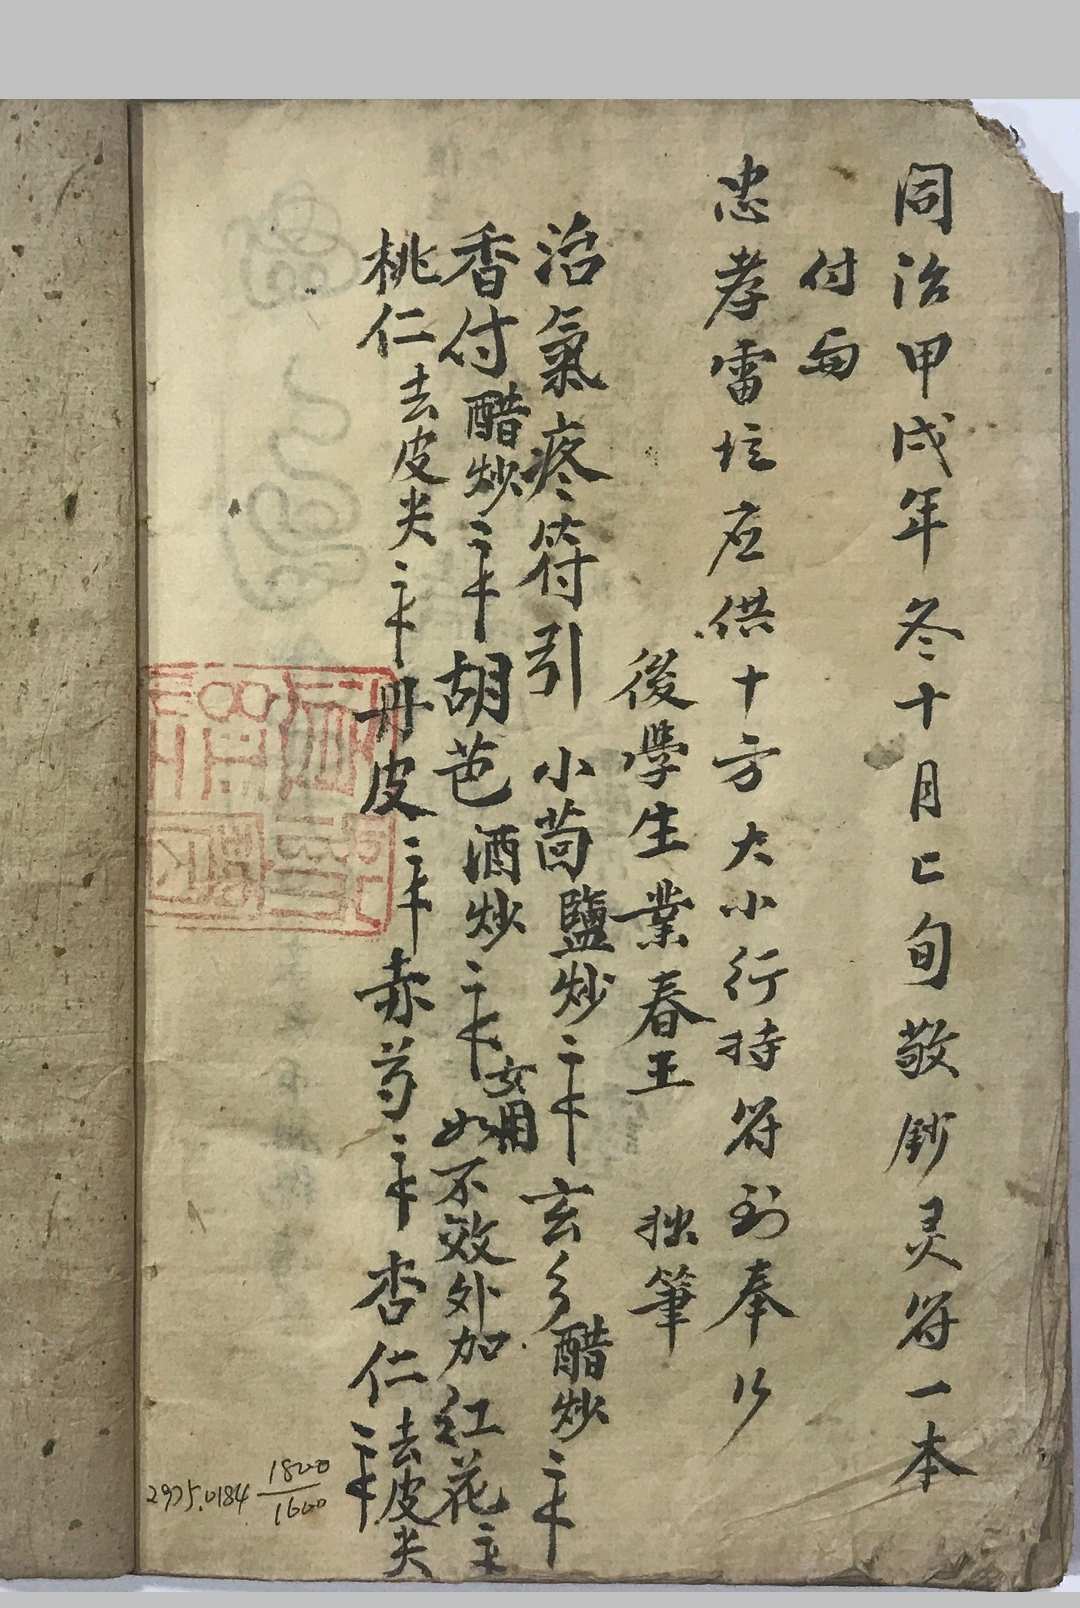 同治甲戌年冬十月上旬敬鈔灵符一本
付與
忠孝雷坛应供十方大小行持符到奉行
後學生業春玉 拙筆
治氣疼符引 小茴鹽炒二 玄 醋炒二
香付醋炒二 胡芭酒炒二 女用 如不效外加红花
桃仁去皮尖二 丹皮二 赤芍二 杏仁去皮尖二
2975.0184 1800
1600